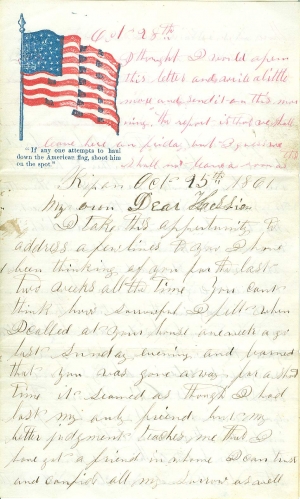 Oct 28th
I thought I would open
this letter and write a little
more and send it on this mor
ning. The report is that we shall
leave here on friday and I guess we
shall
"If any one attempts to haul
down the American flag, shoot him
on the spot."
Ripon Oct 15th 1861
My own Dear
I take this oppertunity to
address a few lines to you I have
been thinking of you for the last
two weeks all the time You cant
think how sorrowful I felt when
I called at your house one week ago
last Sunday evening and learned
that you was gone away for a short
time it seamed as though I had
lost my only friend but my
better judgment teaches me that I
have got a friend in whome I can trust
and confide all my sorrow as well